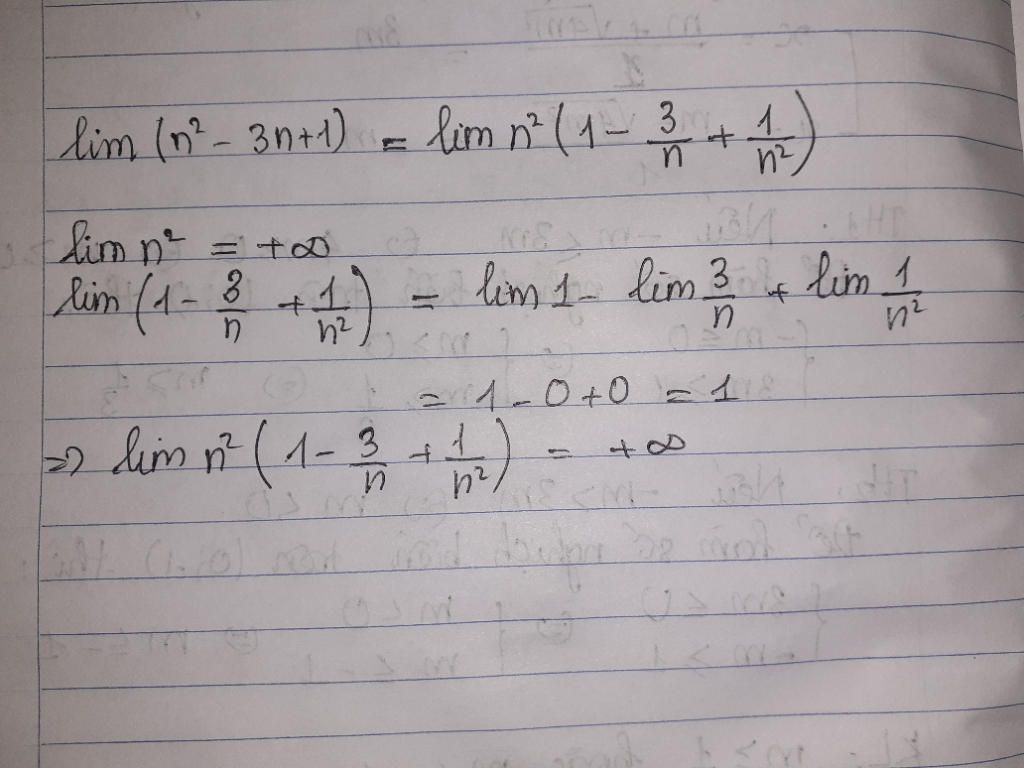 lim (n² - 3n+1) = lim n² (1 - 3/n + 1/n²)
lim n² = +∞
lim (1 - 3/n + 1/n²) = lim 1 - lim 3/n + lim 1/n²
= 1 - 0 + 0 = 1
=> lim n² (1 - 3/n + 1/n²) = +∞